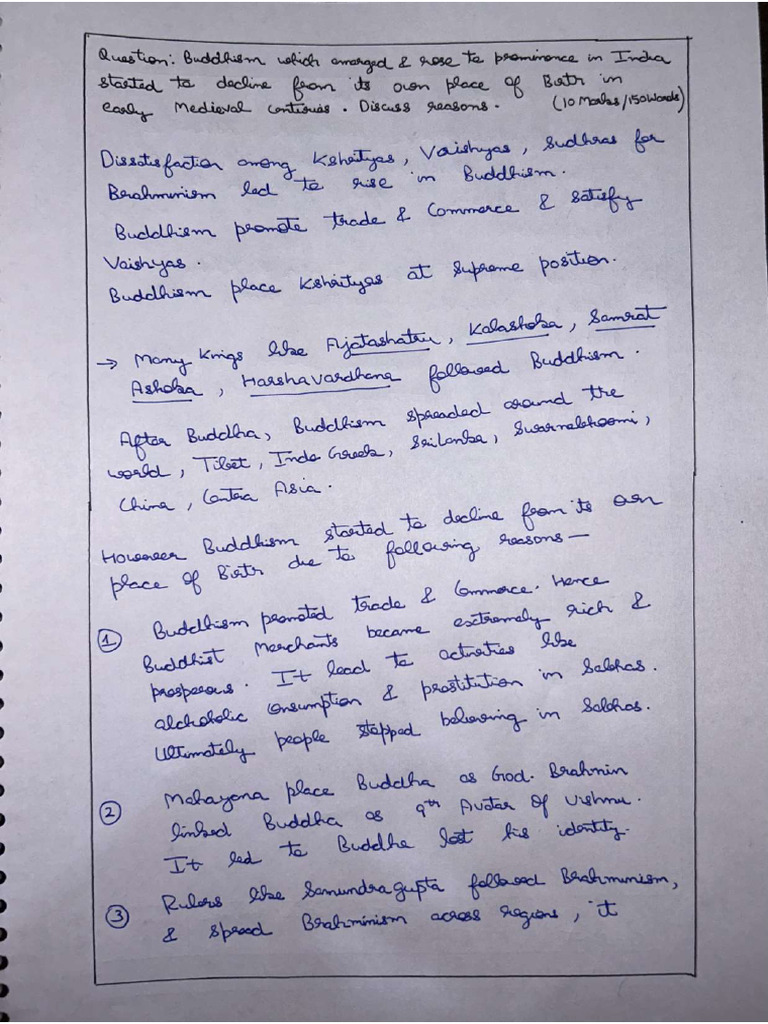 Question: Buddhism which emerged & rose to prominence in India
started to decline from its own place of Birth in
early Medieval centuries. Discuss reasons. (10 Marks/150 Words)
Dissatisfaction among Kshaityas, Vaishyas, Sudhras for
Brahminism led to rise in Buddhism.
Buddhism promote trade & Commerce & satisfy
Vaishyas.
Buddhism place Kshaityas at supreme position.
→ Many Kings like Ajatashatru, Kalashoka, Samrat
Ashoka, Harshavardhana followed Buddhism.
After Buddha, Buddhism spreaded around the
world, Tibet, Indo Greek, SriLanka, Swarnabhoomi,
China, Centra Asia.
However Buddhism started to decline from its own
place of Birth due to following reasons—
1 Buddhism promoted trade & Commerce. Hence
Buddhist Merchants became extremely rich &
prosperous. It lead to activities like
alchoholic consumption & prostitution in Sabhas.
Ultimately people stopped believing in Sabhas.
2 Mahayana place Buddha as God. Brahmin
linked Buddha as 9th Avatar of Vishnu.
It led to Buddha lost his identity.
3 Rulers like Samundragupta followed Brahminism,
& spread Brahminism across regions, it